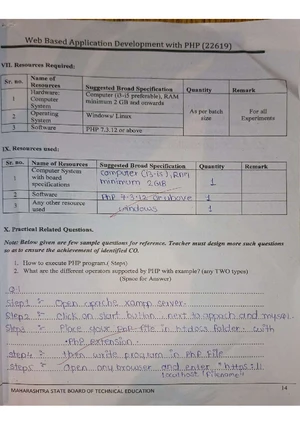 Web Based Application Development with PHP (22619)
VII. Resources Required:
Sr. no. Name of Resources Suggested Broad Specification Quantity Remark
1 Hardware: Computer System Computer (i3-i5 preferable), RAM minimum 2 GB and onwards As per batch size For all Experiments
2 Operating System Windows/ Linux
3 Software PHP 7.3.12 or above
IX. Resources used:
Sr. no. Name of Resources Suggested Broad Specification Quantity Remark
1 Computer System with board specifications computer (i3-i5), RAM minimum 2GB 1
2 Software PHP 7.3.12 or above 1
3 Any other resource used windows
X. Practical Related Questions.
Note: Below given are few sample questions for reference. Teacher must design more such questions
so as to ensure the achievement of identified CO.
1. How to execute PHP program.( Steps)
2. What are the different operators supported by PHP with example? (any TWO types)
(Space for Answer)
Q.1
Step1 :- Open apache xamp server.
Step2 :- Click on start button next to appach and mysql
Step3 :- Place your PHP-file in htdocs folder with
.PHP extension.
step4 :- then write program in PHP File
step5 :- open any browser and enter "https://
localhost "filename"
MAHARASHTRA STATE BOARD OF TECHNICAL EDUCATION 14